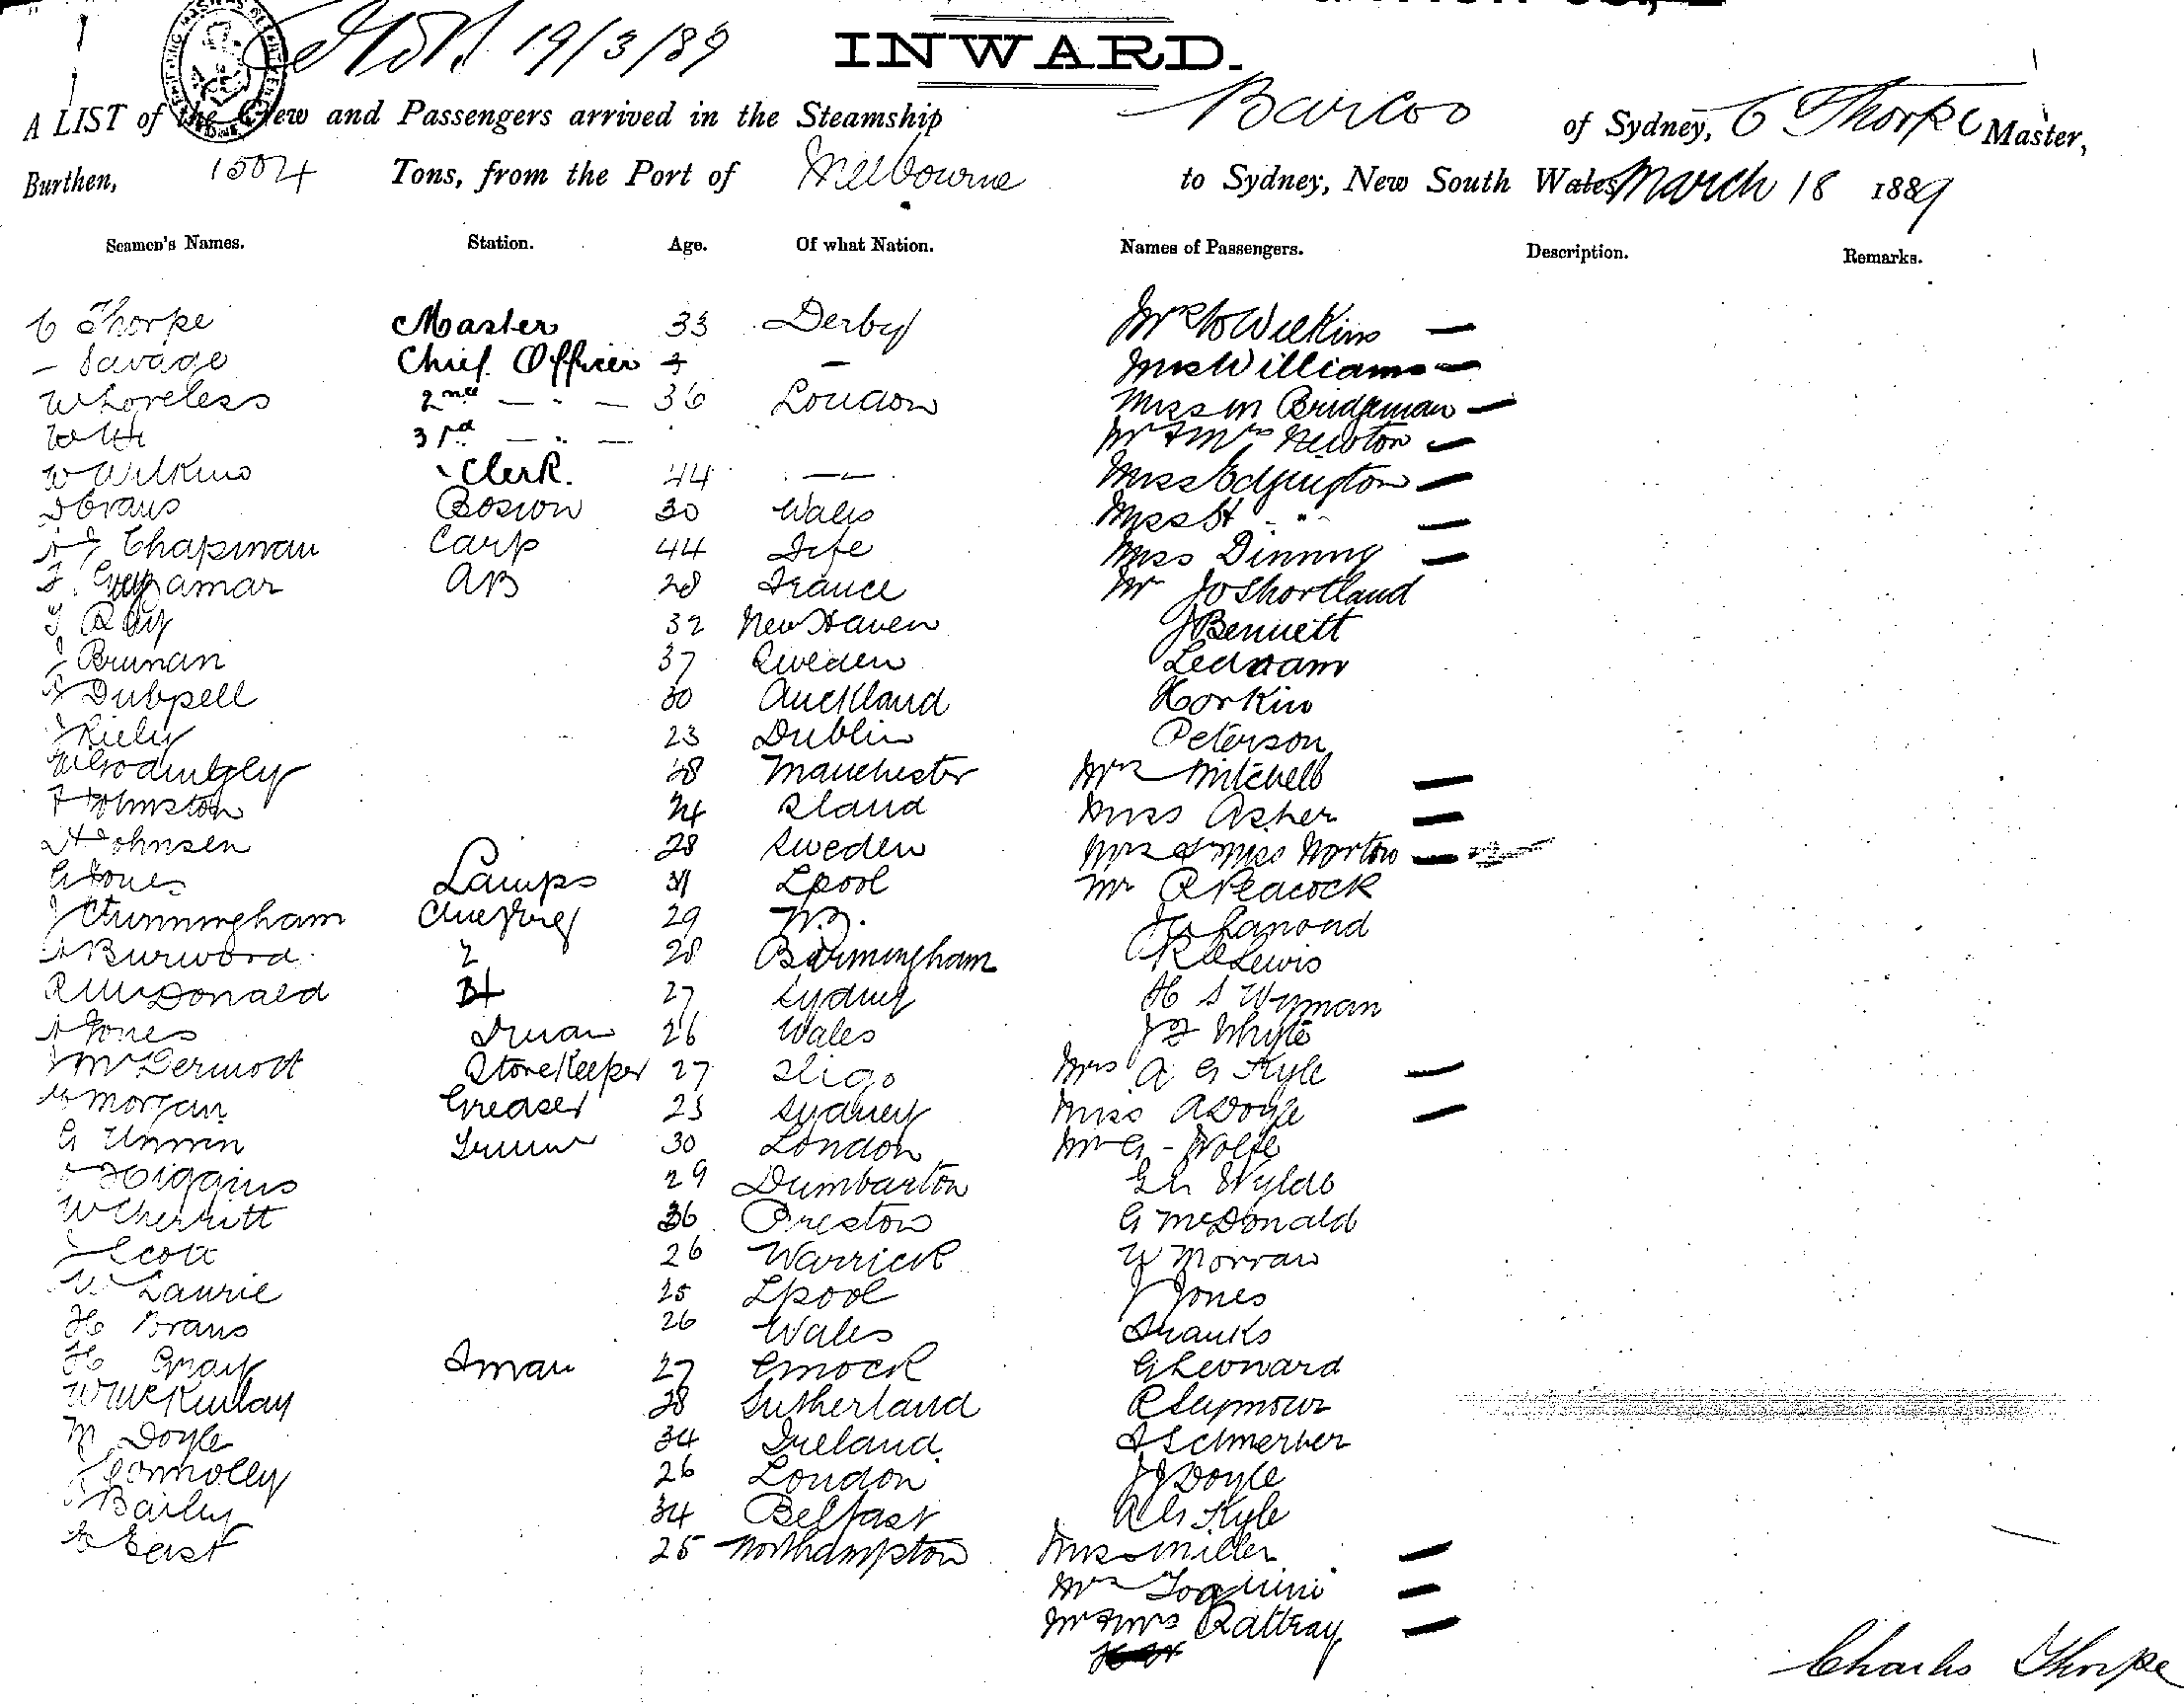 19/3/89
INWARD.
A LIST of the Crew and Passengers arrived in the Steamship Barcoo of Sydney, C Thorpe Master,
Burthen, 1504 Tons, from the Port of Melbourne to Sydney, New South Wales March 18 1889
Seamen's Names. Station. Age. Of what Nation. Names of Passengers. Description. Remarks.
C Thorpe Master 33 Derby Wilkins —
— Savage Chief Officer — Mrs Williams —
W Loveless 2nd — " — 36 London Miss M Bridgeman —
3rd — " — Mr & Mrs Newton —
W Wilkins Clerk. 44 — Miss Edgington —
D Evans Bosion 30 Wales Miss H " —
Chapman Carp 44 Fife Miss Dinning —
AB 28 France Mr Jo Shortland
Ray 32 New Haven J Bennett
Brunan 37 Sweden Lednam
Dubpell 30 Auckland Horkins
J Riely 23 Dublin Peterson
28 Manchester Mrs Mitchell —
Johnston 24 Miss Asher —
Johnsen 28 Sweden Mrs & Miss Norton —
G Jones Lamps Lpool Mr R Peacock
J Cunningham 29 Lamond
Burword 2 28 Birmingham Lewis
R McDonald 3d 27 Sydney H S Wyman
Jones 26 Wales J F Whyte
McDermott Storekeeper 27 Sligo Mrs A G Kyle —
Morgan Greaser 25 Sydney Miss A Doyle —
G Unwin 30 London Mr G - Wolfe
Higgins 29 Dumbarton Wylde
W Cherritt 36 Preston G McDonald
Scott 26 Warrick W Morraw
W Laurie 25 Lpool J Jones
H Evans 26 Wales Shanks
H Gray Fman 27 G Leonard
W McKinlay 28 Sutherland R Seymour
M Doyle 34 Ireland.
J Connolly 26 London J J Doyle
Baily 34 Belfast A G Kyle
East 25 Northampton Miss Miller —
Mrs —
Mr & Mrs Rattray —
Charles Thorpe